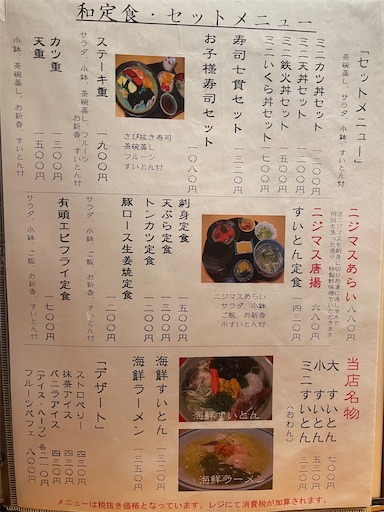 和定食・セットメニュー
「セットメニュー」
茶碗蒸し、サラダ、小鉢、すいとん付
ミニカツ丼セット
ミニ天丼セット
ミニ鉄火丼セット
ミニいくら丼セット
寿司七貫セット
お子様寿司セット 一〇八〇
さび抜き寿司
茶碗蒸し
フルーツ
すいとん付
ステーキ重 一九〇〇
サラダ、小鉢、フルーツ
茶碗蒸し、お新香、すいとん付
カツ重 一三〇〇
天重 一五〇〇
小鉢、茶碗蒸し、お新香、すいとん付
ニジマスあらい 八八〇
ニジマス唐揚 六八〇
すいとん定食 一四三〇
ニジマスあらい
サラダ、小鉢
ご飯、お新香
小すいとん付
刺身定食 一五〇〇
天ぷら定食
トンカツ定食
豚ロース生姜焼定食 一二〇〇
サラダ、小鉢、ご飯、お新香、すいとん付
有頭エビフライ定食 一七〇〇
サラダ、小鉢、ご飯、お新香、すいとん付
当店名物
大すいとん 七〇〇
小すいとん
ミニすいとん
(おわん)
海鮮すいとん
海鮮ラーメン
海鮮すいとん
海鮮ラーメン 一三五〇
「デザート」
ストロベリー 四三〇
抹茶アイス 四三〇
バニラアイス
(アイス・ハーフ)各
フルーツパフェ 八〇〇
メニューは税抜き価格となっています。レジにて消費税が加算されます。